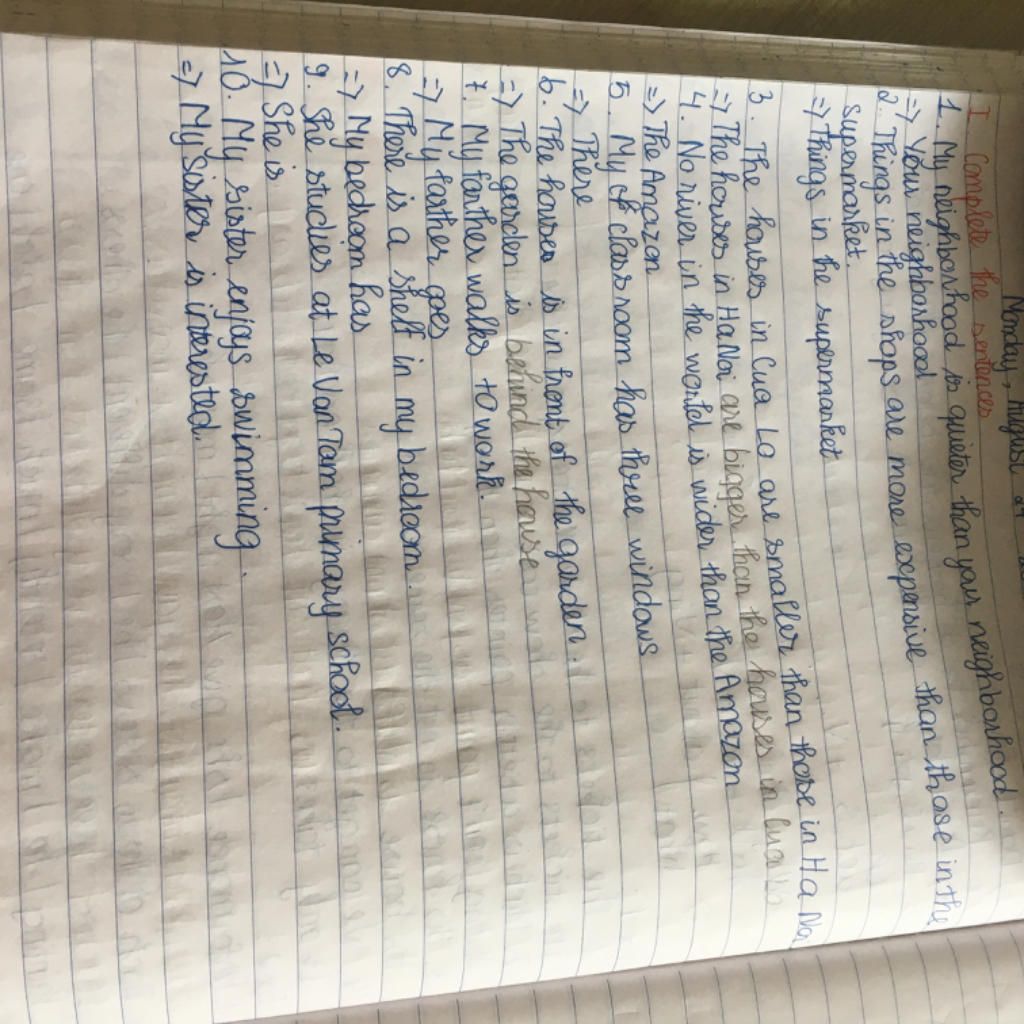 Monday, August 24
I Complete the sentences
1. My neighborhood is quieter than your neighborhood.
=> Your neighborhood
2. Things in the shops are more expensive than those in the
supermarket.
=> Things in the supermarket
3. The houses in Cua Lo are smaller than those in Ha Noi
=> The houses in Ha Noi are bigger than the houses in Cua Lo
4. No river in the world is wider than the Amazon
=> The Amazon
5. My classroom has three windows
=> There
6. The houses is in front of the garden.
=> The garden is behind the house
7. My farther walks to work.
=> My farther goes
8. There is a shelf in my bedroom.
=> My bedroom has
9. She studies at Le Van Tam primary school.
=> She is
10. My sister enjoys swimming.
=> My sister is interested.